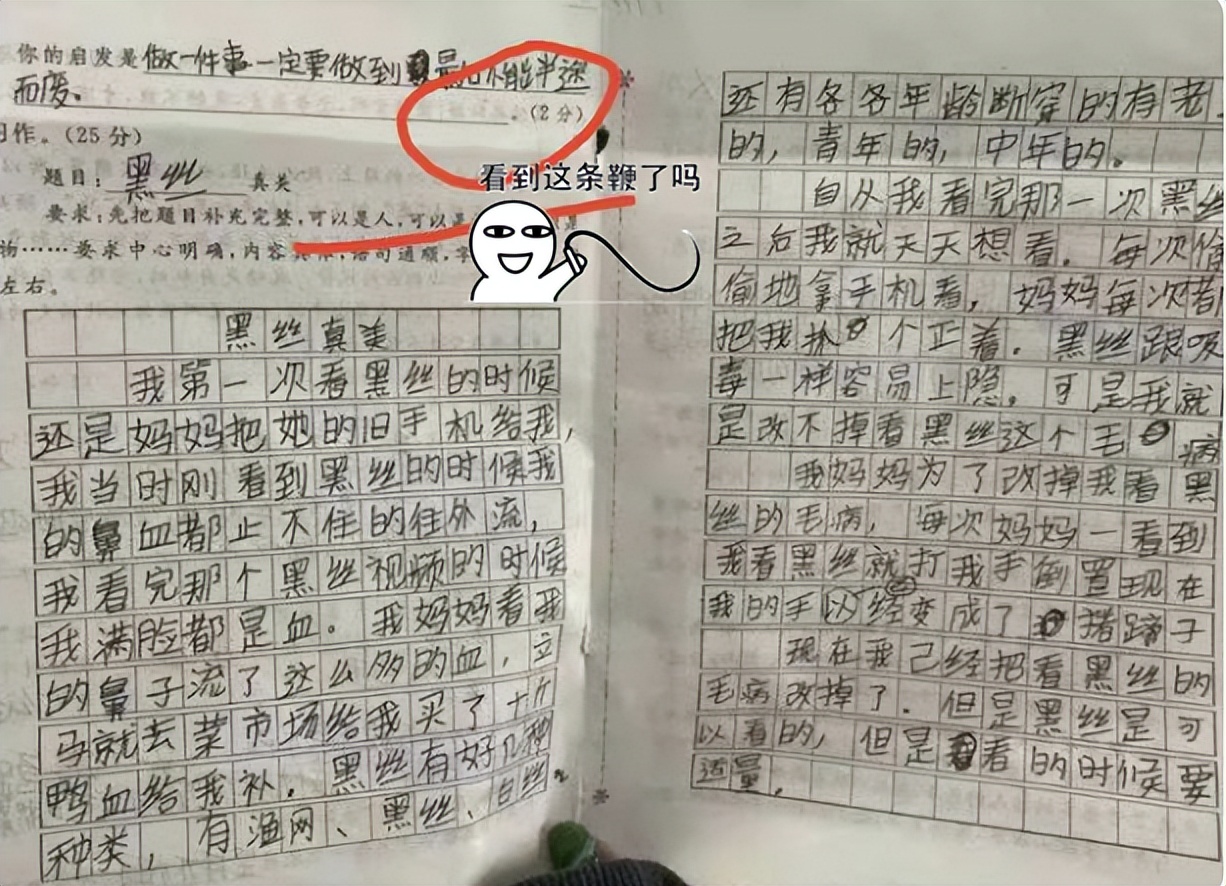 你的启发是做一件事一定要做到最后不能半途
而废。
。(2分)
习作。(25分)
题目：黑丝 真美
要求：先把题目补充完整，可以是人，可以是 是
物……要求中心明确，内容具体，语句通顺，字
左右。
看到这条鞭了吗
黑丝真美
我第一次看黑丝的时候
还是妈妈把她的旧手机给我，
我当时刚看到黑丝的时候我
的鼻血都止不住的往外流，
我看完那个黑丝视频的时候
我满脸都是血。我妈妈看我
的鼻子流了这么多的血，立
马就去菜市场给我买了十斤
鸭血给我补。黑丝有好几种
种类，有渔网、黑丝、白丝
还有各各年龄断穿的有老
的，青年的，中年的。
自从我看完那一次黑丝
之后我就天天想看。每次偷
偷地拿手机看，妈妈每次都
把我抓个正着。黑丝跟吸
毒一样容易上隐。可是我就
是改不掉看黑丝这个毛病
我妈妈为了改掉我看黑
丝的毛病，每次妈妈一看到
我看黑丝就打我手倒置现在
我的手以经变成了猪蹄子
现在我己经把看黑丝的
毛病改掉了。但是黑丝是可
以看的，但是看的时候要
适量。